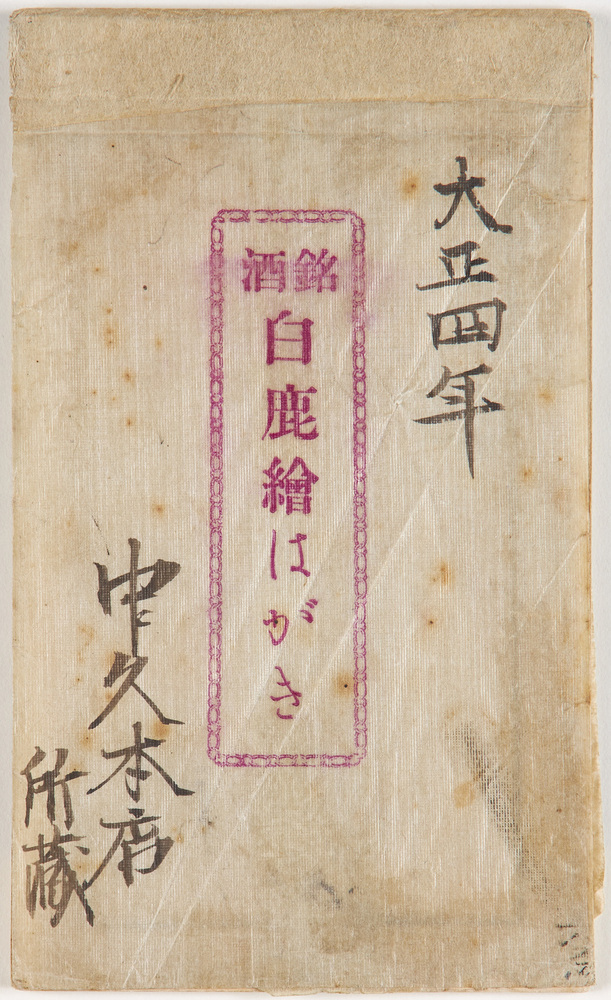 大正四年
銘酒
白鹿繪はがき
中久本店
所蔵